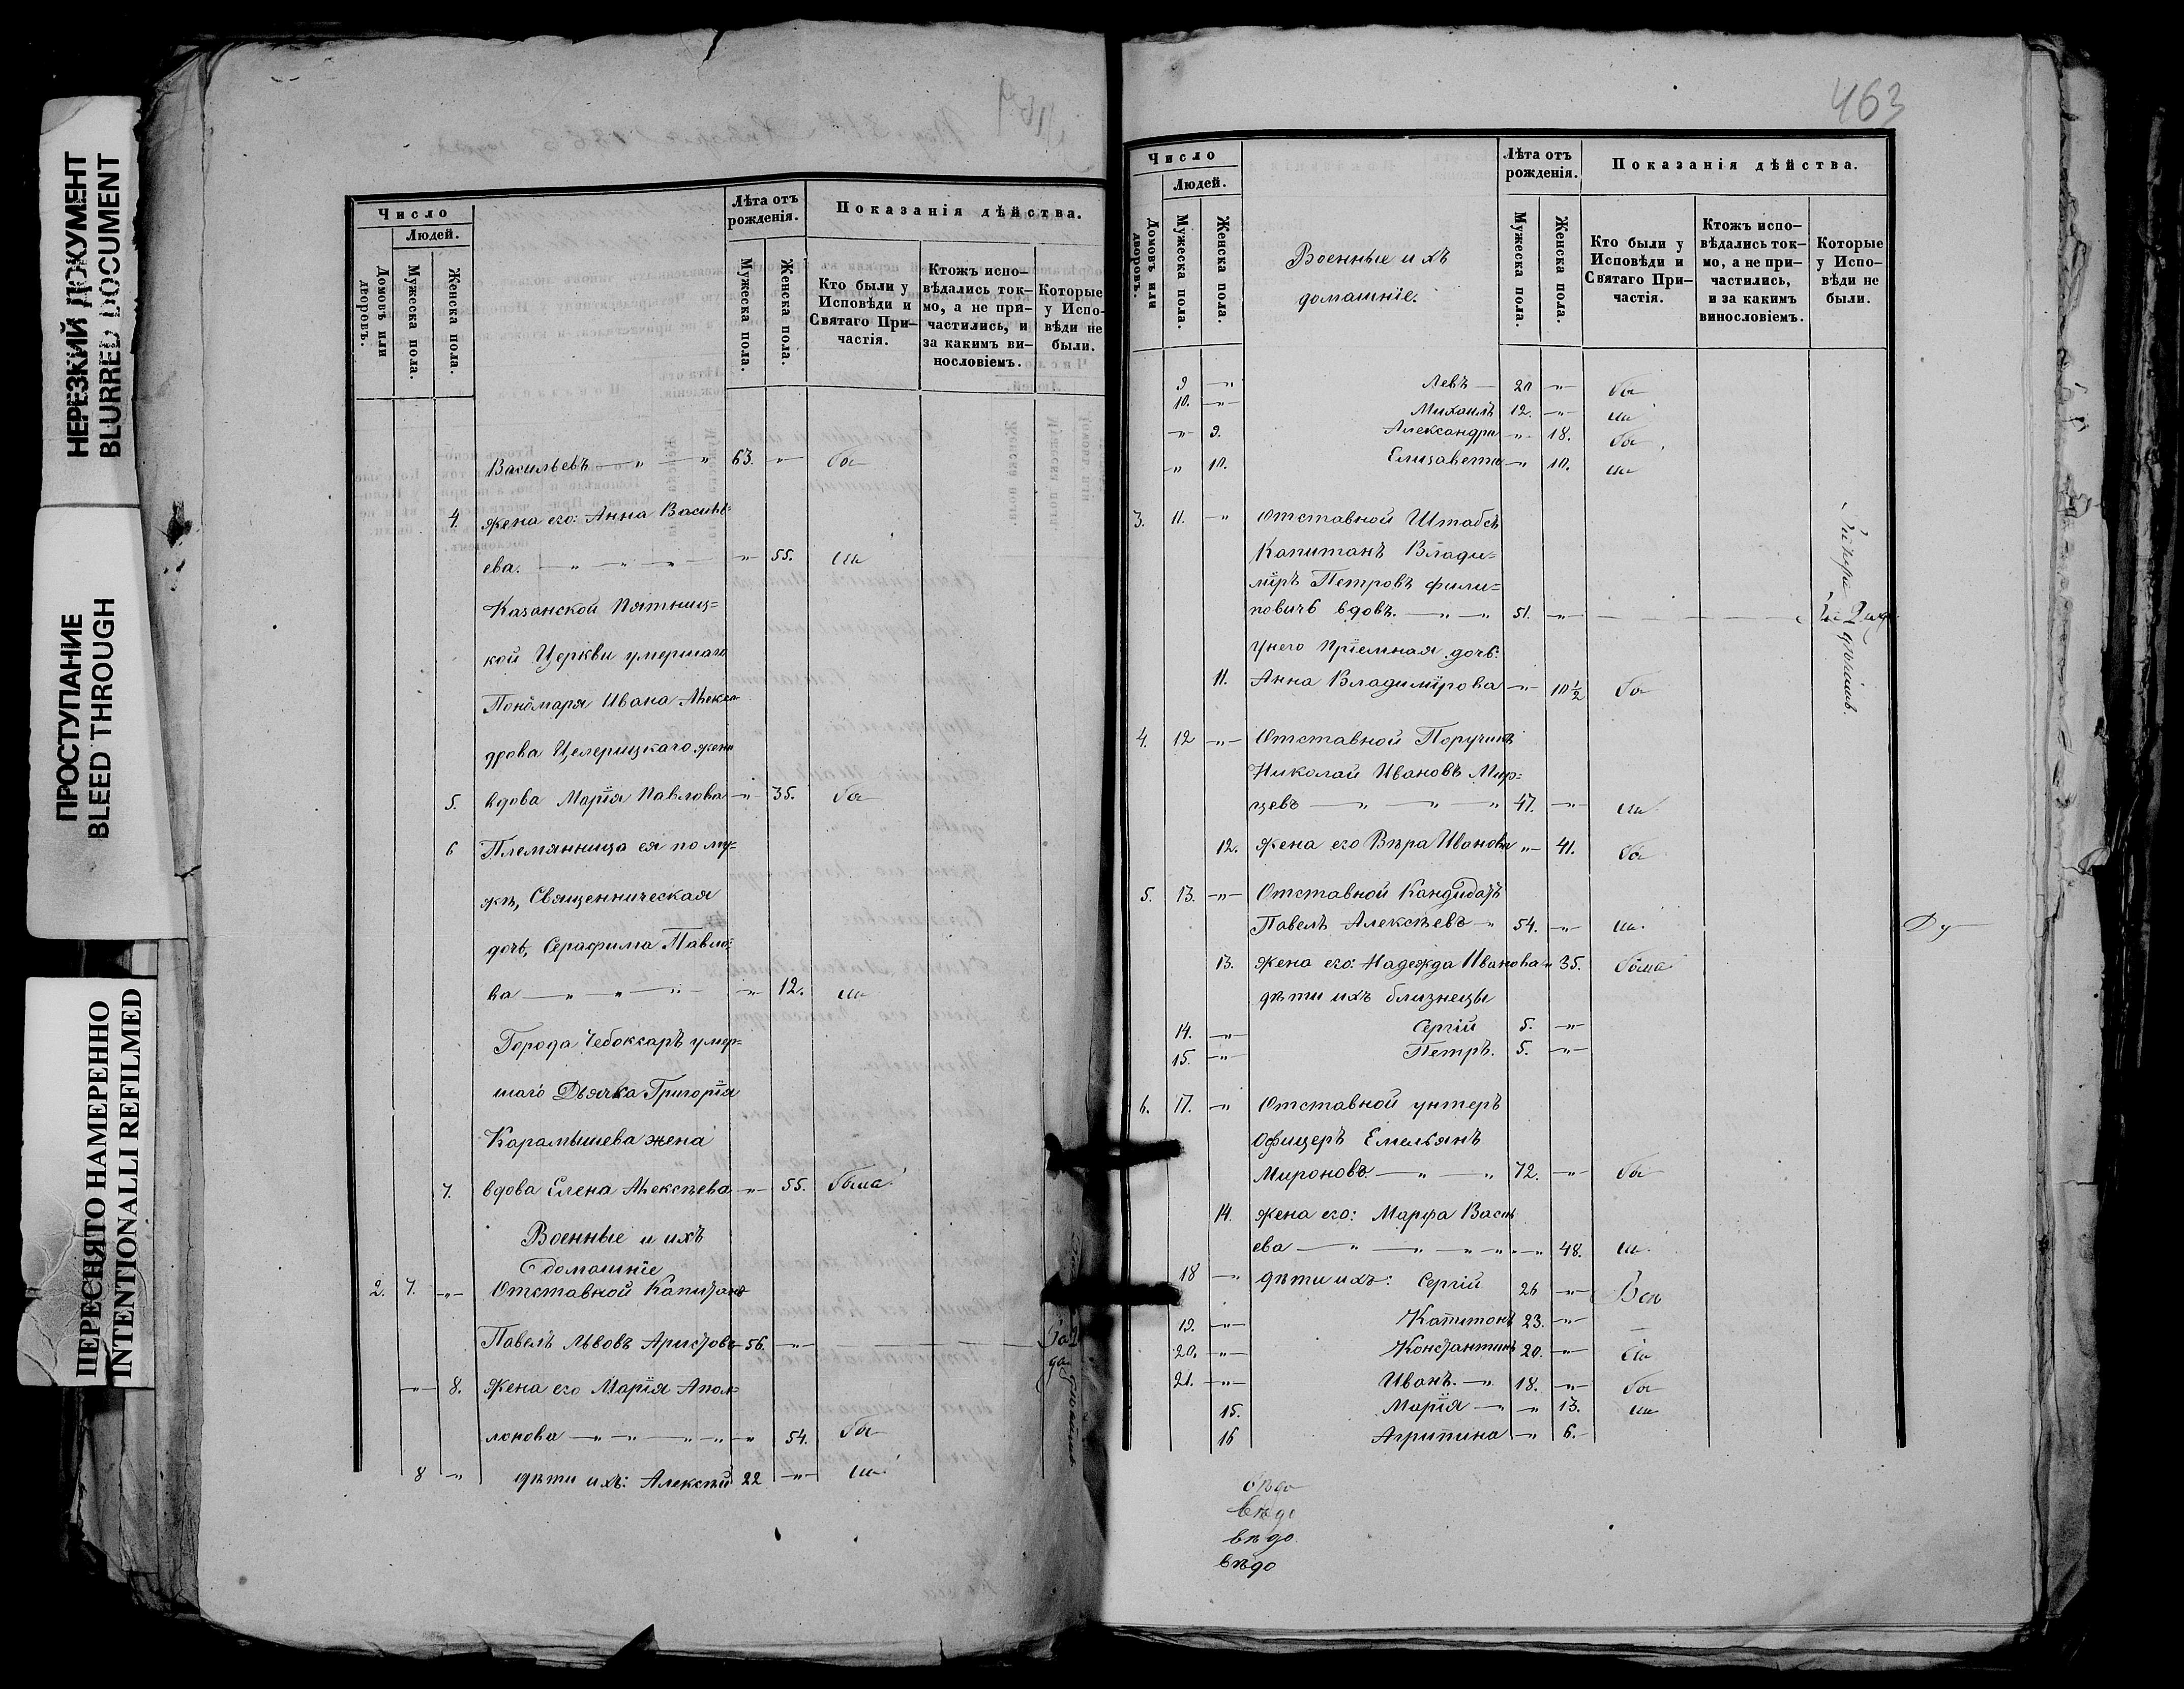 НЕРЕЗКИЙ ДОКУМЕНТ
BLURRED DOCUMENT
ПРОСТУПАНИЕ
BLEED THROUGH
ПЕРЕСНЯТО НАМЕРЕННО
INTENTIONALLI REFILMED
Число
Людей.
Домовъ или дворовъ.
Мужеска пола.
Женска пола.
Лѣта отъ рожденія.
Мужеска пола.
Женска пола.
Показанія дѣйства.
Кто были у Исповѣди и Святаго Причастія.
Ктожъ исповѣдались токмо, а не причастились, и за какимъ винословіемъ.
Которые у Исповѣди не были.
Васильевъ — " — " 63. — " — бы
4. жена его: Анна Василь=
ева. — " — " — " — " — 55. ли
Казанской Пятниц=
кой Церкви умершаго
Пономаря Ивана Алекса
дрова Целерицкаго жена
5. вдова Марія Павлова — " — 35. бы
6 Племянница ея по му=
жѣ, Священническая
дочь, Серафима Павло=
ва — " — " — " — " — 12. ли
Города Чебоксаръ умер=
шаго Дьячка Григорія
Карамышева жена
7. вдова Елена Алексѣева — " — 55. была
Военные и ихъ
домашніе
2. 7. — " — Отставной Капитанъ
Павелъ Львовъ Аристовъ — 56. — " —
— " — 8. Жена его Марія Апол=
лонова — " — " — " — " — " 54. бы
8 — " дѣти ихъ: Алексѣй 22 — " — ли
463
Число
Людей.
Домовъ или дворовъ.
Мужеска пола.
Женска пола.
Военные и хъ
домашніе.
Лѣта отъ рожденія.
Мужеска пола.
Женска пола.
Показанія дѣйства.
Кто были у Исповѣди и Святаго Причастія.
Ктожъ исповѣдались токмо, а не причастились, и за какимъ винословіемъ.
Которые у Исповѣди не были.
9 — " Левъ — 20 — " — бы
10. — " — Михаилъ 12. — " — ли
— " 9. Александра — " — 18. бы
— " 10. Елизавета — " 10. ли
3. 11. — " Отставной Штабсъ
Капитанъ Влади=
міръ Петровъ Фили=
повичь вдовъ. — " — " 51. — " —
У него Пріемная дочь:
11. Анна Владимірова — " — 10 1/2 бы
4. 12 — " — Отставной Поручикъ
Николай Ивановъ Мир=
цевъ — " — " — " 47. — " — ли
12. жена его Вѣра Иванова " — 41. бы
5. 13. — " — Отставной Кандидатъ
Павелъ Алексѣевъ — " 54. — " — ли.
13. жена его: Надежда Иванова " 35. была
дѣти ихъ близнецы
14. — " — Сергій 5. — " —
15. — " — Петръ. 5. — " —
6. 17. — " Отставной унтеръ
офицеръ Емельянъ
Мироновъ. — " — " 72. — " бы
14. жена его: Марфа Васил
ева — " — " — " — " — " 48. ли.
18 — " дѣти ихъ: Сергій 26 — "
19. — " — Капитонъ 23. — " —
20. — " — Константинъ 20. — "
21. — " — Иванъ. — " 18. — " — бы
15. Марія — " — " 13. ли
16 Агрипина — " 6. —
вѣдо
вѣдо
вѣдо